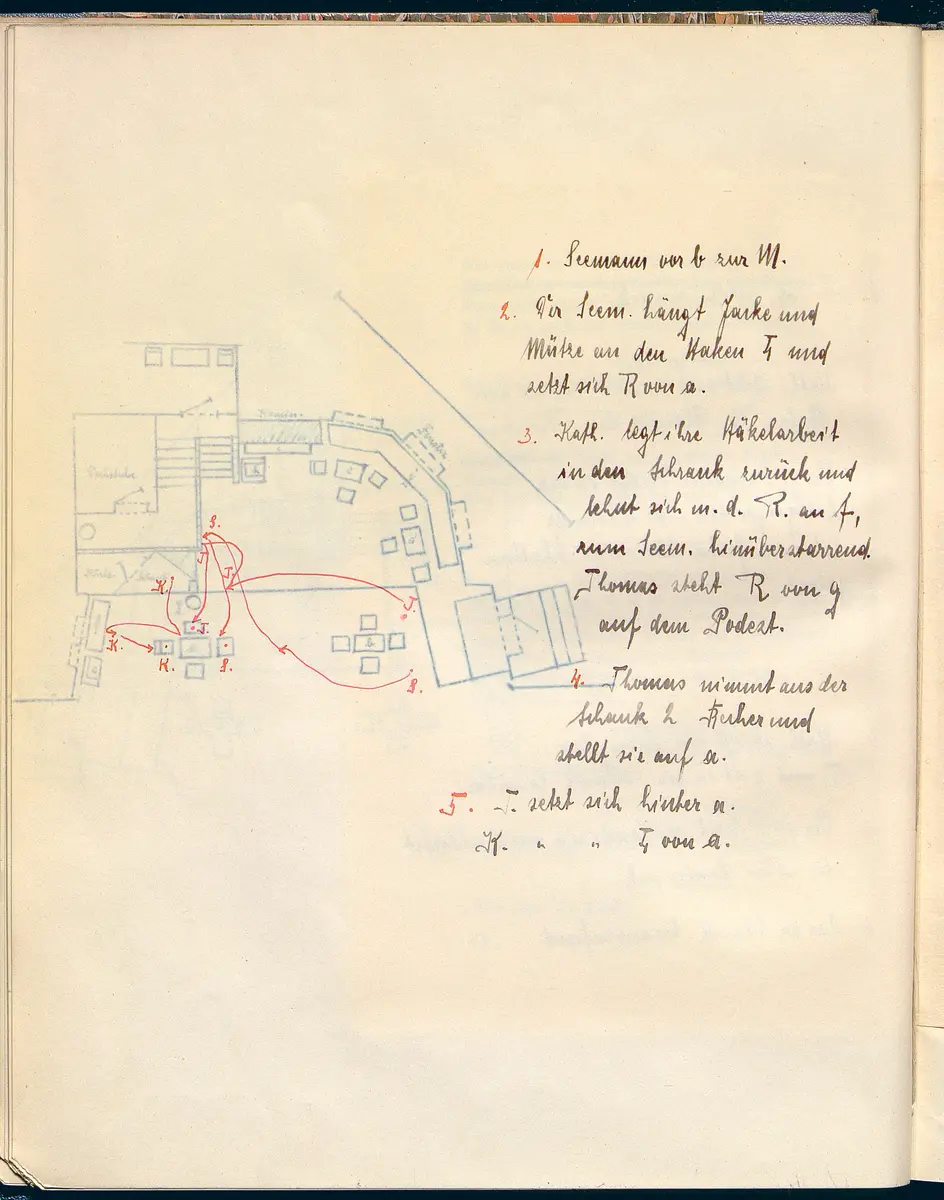 1. Seemann vor b zur M.
2. Der Seem. hängt Jacke und
Mütze an den Haken L und
setzt sich R von a.
3. Kath. legt ihre Häkelarbeit
in den Schrank zurück und
lehnt sich m. d. R. an f,
zum Seem. hinüberstarrend.
Thomas steht R von g
auf dem Podest.
4. Thomas nimmt aus der
Schank 2 Becher und
stellt sie auf a.
5. T. setzt sich hinter a.
K. " " L von a.
Kamin
Fenster
S.
T.
K.
T.
T.
K.
K.
S.
S.